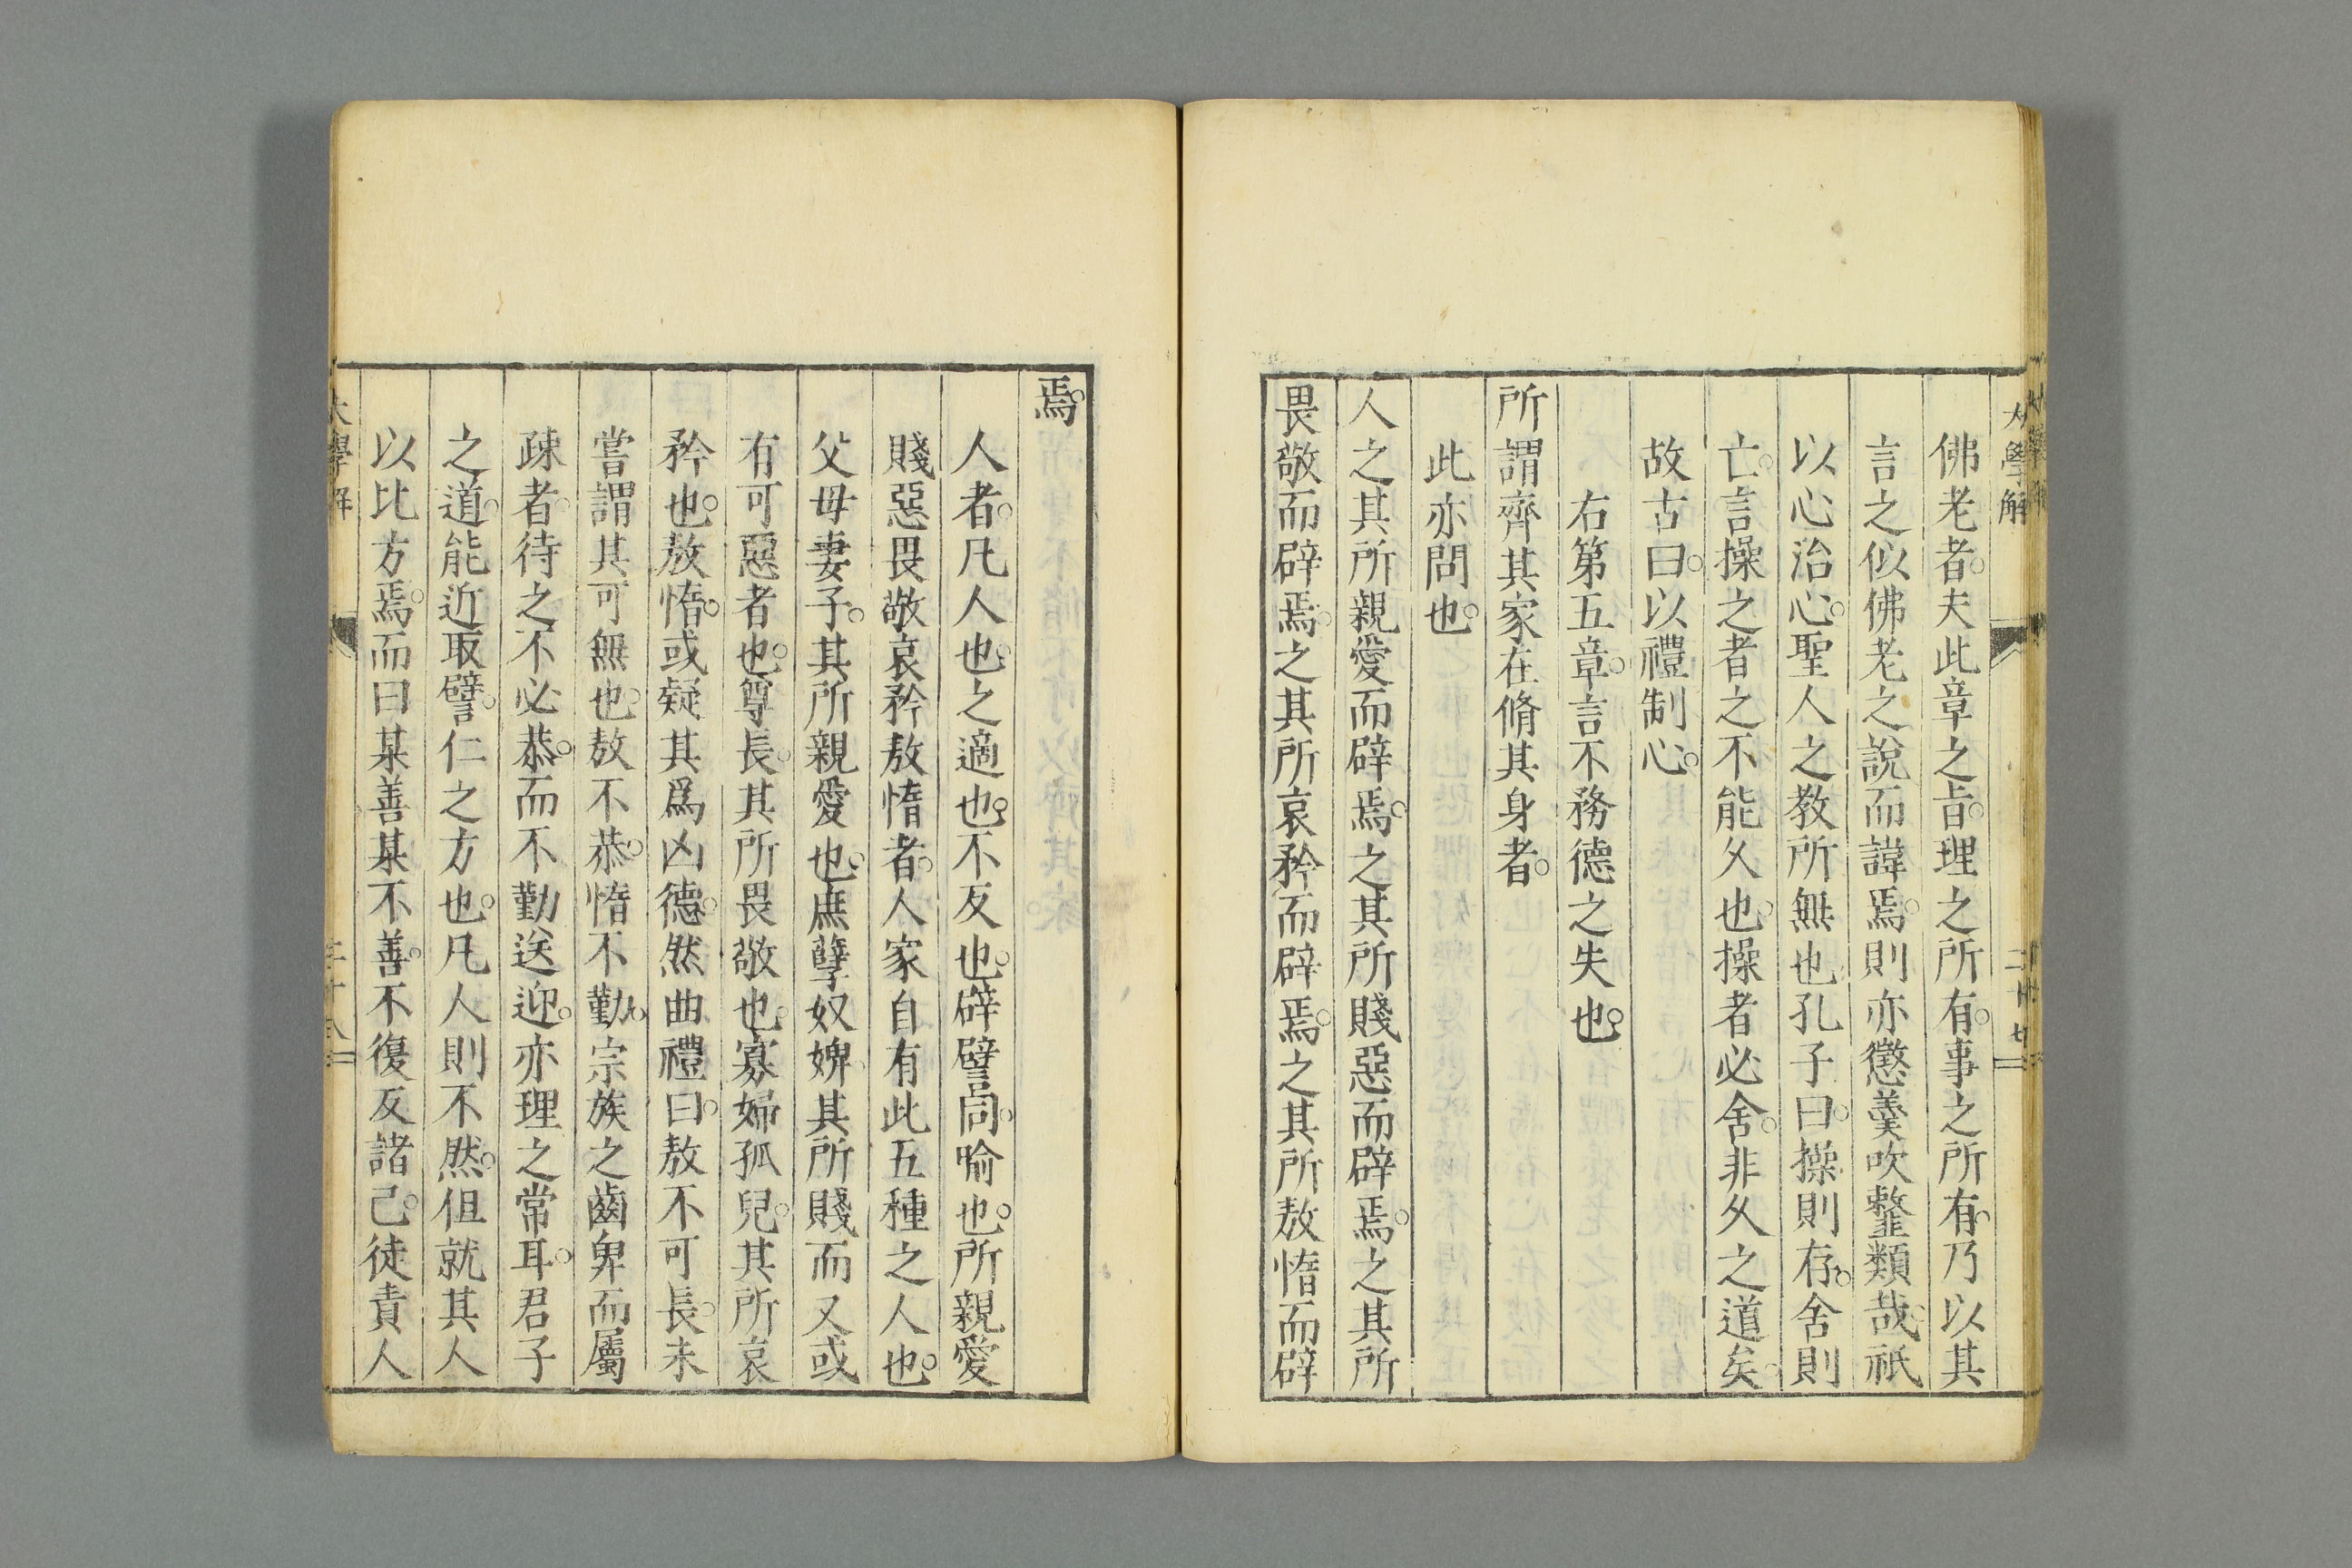 大學解 二十七
佛老者。夫此章之旨。理之所有。事之所有。乃以其
言之似佛老之說而諱焉。則亦懲羹吹韲類哉。祇
以心治心。聖人之教所無也。孔子曰。操則存。舍則
亡。言操之者之不能久也。操者必舍。非久之道矣。
故古曰。以禮制心。
右第五章。言不務德之失也。
所謂齊其家在脩其身者。
此亦問也。
人之其所親愛而辟焉。之其所賤惡而辟焉。之其所
畏敬而辟焉。之其所哀矜而辟焉。之其所敖惰而辟
焉。
人者。凡人也。之適也。不反也。辟譬同。喻也。所親愛
賤惡畏敬哀矜敖惰者。人家自有此五種之人也。
父母妻子。其所親愛也。庶孽奴婢。其所賤而又或
有可惡者也。尊長。其所畏敬也。寡婦孤兒。其所哀
矜也。敖惰。或疑其爲凶德。然曲禮曰。敖不可長。未
嘗謂其可無也。敖不恭。惰不勤。宗族之齒卑而屬
疎者。待之不必恭。而不勤送迎。亦理之常耳。君子
之道。能近取譬。仁之方也。凡人則不然。但就其人
以比方焉。而曰某善某不善。不復反諸己。徒責人
大學解 二十八